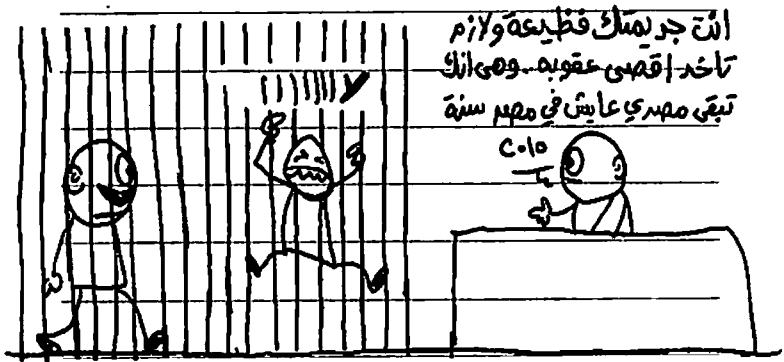 انت جريمتك فظيعة ولازم
تاخد اقصى عقوبه .. وهى انك
تبقى مصري عايش في مصر سنة
٢٠١٥
لااااااا